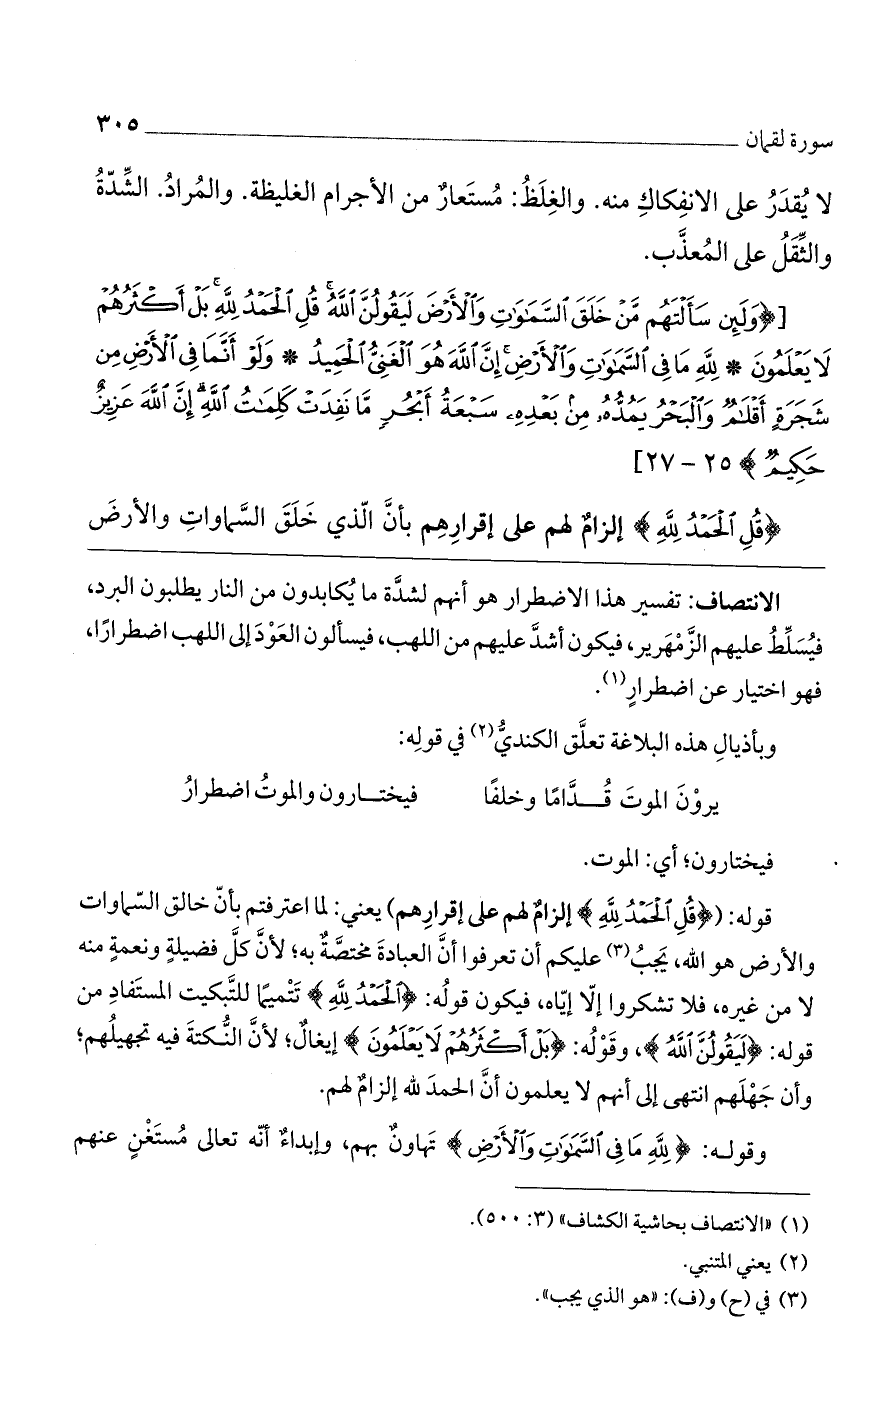 سورة لقمان ٣٠٥
لا يُقدَرُ على الانفِكاكِ منه. والغِلَظُ: مُستَعارٌ من الأجرام الغليظة. والمُرادُ. الشِّدّةُ
والثِّقَلُ على المُعذَّب.
[﴿وَلَئِن سَأَلْتَهُم مَّنْ خَلَقَ السَّمَٰوَٰتِ وَالْأَرْضَ لَيَقُولُنَّ اللَّهُ ۚ قُلِ الْحَمْدُ لِلَّهِ ۚ بَلْ أَكْثَرُهُمْ
لَا يَعْلَمُونَ * لِلَّهِ مَا فِي السَّمَٰوَٰتِ وَالْأَرْضِ ۚ إِنَّ اللَّهَ هُوَ الْغَنِيُّ الْحَمِيدُ * وَلَوْ أَنَّمَا فِي الْأَرْضِ مِن
شَجَرَةٍ أَقْلَٰمٌ وَالْبَحْرُ يَمُدُّهُ مِن بَعْدِهِ سَبْعَةُ أَبْحُرٍ مَّا نَفِدَتْ كَلِمَٰتُ اللَّهِ ۗ إِنَّ اللَّهَ عَزِيزٌ
حَكِيمٌ﴾ ٢٥ – ٢٧]
﴿قُلِ الْحَمْدُ لِلَّهِ﴾ إلزامٌ لهم على إقرارِهِم بأنَّ الّذي خَلَقَ السَّماواتِ والأرضَ
الانتصاف: تفسير هذا الاضطرار هو أنهم لشدَّة ما يُكابدون من النار يطلبون البرد،
فيُسَلِّطُ عليهم الزَّمْهَرير، فيكون أشدَّ عليهم من اللهب، فيسألون العَوْدَ إلى اللهب اضطرارًا،
فهو اختيار عن اضطرارٍ(١).
وبأذيالِ هذه البلاغة تعلَّق الكنديُّ(٢) في قولِه:
يروْنَ الموتَ قُـــدَّامًا وخلفًا فيختـــارون والموتُ اضطرارُ
فيختارون؛ أي: الموت.
قوله: (﴿قُلِ الْحَمْدُ لِلَّهِ﴾ إلزامٌ لهم على إقرارِهم) يعني: لما اعترفتم بأنّ خالق السّماوات
والأرض هو الله، يَجبُ(٣) عليكم أن تعرفوا أنَّ العبادةَ مختصَّةٌ به؛ لأنَّ كلَّ فضيلةٍ ونعمةٍ منه
لا من غيره، فلا تشكروا إلّا إيّاه، فيكون قولُه: ﴿الْحَمْدُ لِلَّهِ﴾ تَتْميمًا للتَّبكيت المستَفادِ من
قوله: ﴿لَيَقُولُنَّ اللَّهُ﴾، وقوْلُه: ﴿بَلْ أَكْثَرُهُمْ لَا يَعْلَمُونَ﴾ إيغالٌ؛ لأنَّ النُّكتةَ فيه تجهيلُهم؛
وأن جَهْلَهم انتهى إلى أنهم لا يعلمون أنَّ الحمدَ لله إلزامٌ لهم.
وقولـه: ﴿لِلَّهِ مَا فِي السَّمَٰوَٰتِ وَالْأَرْضِ﴾ تهاونٌ بهم، وإبداءٌ أنّه تعالى مُستَغْنٍ عنهم
(١) «الانتصاف بحاشية الكشاف» (٣: ٥٠٠).
(٢) يعني المتنبي.
(٣) في (ح) و(ف): «هو الذي يجب».